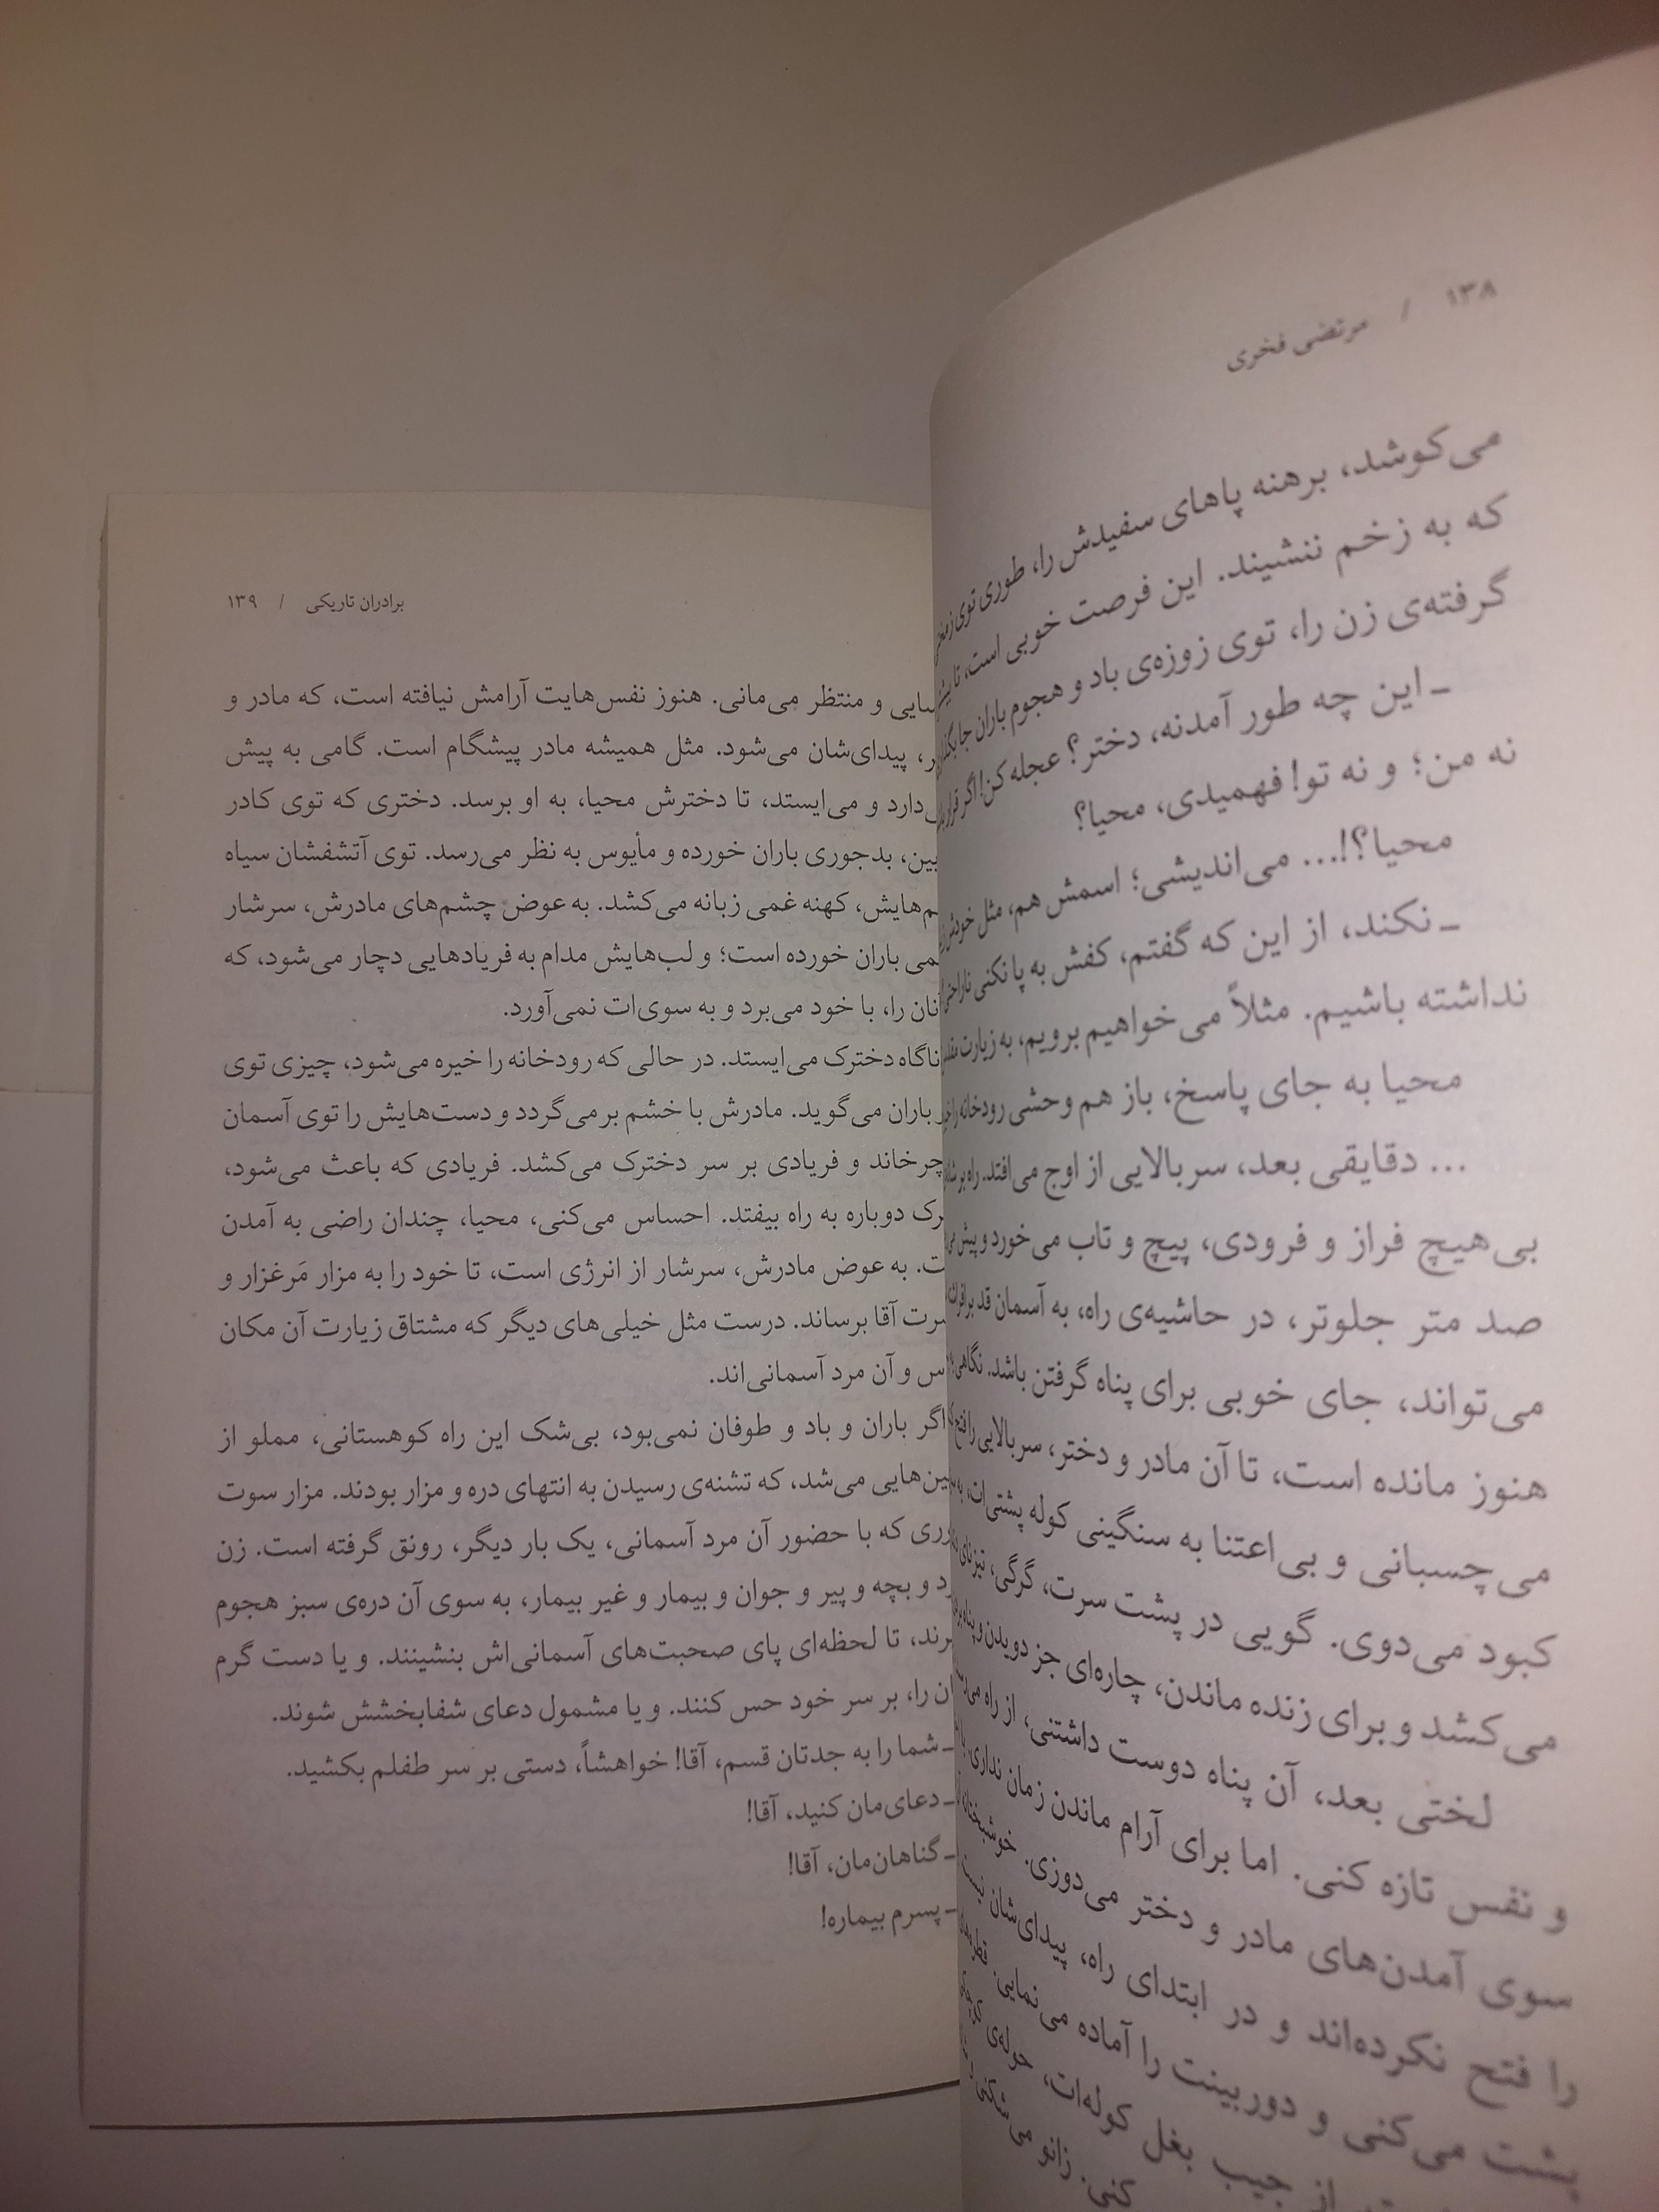 ۱۳۸ / مرتضی فخری
می‌کوشد، برهنه پاهای سفیدش را، طوری توی
که به زخم ننشیند. این فرصت خوبی است، تا
گرفته‌ی زن را، توی زوزه‌ی باد و هجوم باران
ـ این چه طور آمدنه، دختر؟ عجله کن! اگر قرار
نه من؛ و نه تو! فهمیدی، محیا؟
محیا؟!... می‌اندیشی؛ اسمش هم، مثل خودش
ـ نکند، از این که گفتم، کفش به پا نکنی
نداشته باشیم. مثلاً می‌خواهیم برویم، به زیارت
محیا به جای پاسخ، باز هم وحشی رودخانه را
... دقایقی بعد، سربالایی از اوج می‌افتد. راه بر
بی‌هیچ فراز و فرودی، پیچ و تاب می‌خورد و پیش
صد متر جلوتر، در حاشیه‌ی راه، به آسمان قد
می‌تواند، جای خوبی برای پناه گرفتن باشد. نگاهی
هنوز مانده است، تا آن مادر و دختر، سربالایی را فتح
می‌چسبانی و بی‌اعتنا به سنگینی کوله پشتی‌ات، به
کبود می‌دوی. گویی در پشت سرت، گرگی، تیز
می‌کشد و برای زنده ماندن، چاره‌ای جز دویدن و پناه
لختی بعد، آن پناه دوست داشتنی، از راه
و نفس تازه کنی. اما برای آرام ماندن زمان نداری.
سوی آمدن‌های مادر و دختر می‌دوزی. خوشبختانه
را فتح نکرده‌اند و در ابتدای راه، پیدای‌شان نیست
پشت می‌کنی و دوربینت را آماده می‌نمایی.
از جیب بغل کوله‌ات، حوله‌ی
کنی. زانو
برادران تاریکی / ۱۳۹
و منتظر می‌مانی. هنوز نفس‌هایت آرامش نیافته است، که مادر و
پیدای‌شان می‌شود. مثل همیشه مادر پیشگام است. گامی به پیش
و می‌ایستد، تا دخترش محیا، به او برسد. دختری که توی کادر
بدجوری باران خورده و مأیوس به نظر می‌رسد. توی آتشفشان سیاه
کهنه غمی زبانه می‌کشد. به عوض چشم‌های مادرش، سرشار
باران خورده است؛ و لب‌هایش مدام به فریادهایی دچار می‌شود، که
را، با خود می‌برد و به سوی‌ات نمی‌آورد.
ناگاه دخترک می‌ایستد. در حالی که رودخانه را خیره می‌شود، چیزی توی
باران می‌گوید. مادرش با خشم برمی‌گردد و دست‌هایش را توی آسمان
چرخاند و فریادی بر سر دخترک می‌کشد. فریادی که باعث می‌شود،
دوباره به راه بیفتد. احساس می‌کنی، محیا، چندان راضی به آمدن
به عوض مادرش، سرشار از انرژی است، تا خود را به مزار مَرغزار و
آقا برساند. درست مثل خیلی‌های دیگر که مشتاق زیارت آن مکان
و آن مرد آسمانی‌اند.
اگر باران و باد و طوفان نمی‌بود، بی‌شک این راه کوهستانی، مملو از
می‌شد، که تشنه‌ی رسیدن به انتهای دره و مزار بودند. مزار سوت
که با حضور آن مرد آسمانی، یک بار دیگر، رونق گرفته است. زن
و بچه و پیر و جوان و بیمار و غیر بیمار، به سوی آن دره‌ی سبز هجوم
تا لحظه‌ای پای صحبت‌های آسمانی‌اش بنشینند. و یا دست گرم
را، بر سر خود حس کنند. و یا مشمول دعای شفابخشش شوند.
ـ شما را به جدتان قسم، آقا! خواهشاً، دستی بر سر طفلم بکشید.
ـ دعای‌مان کنید، آقا!
ـ گناهان‌مان، آقا!
ـ پسرم بیماره!